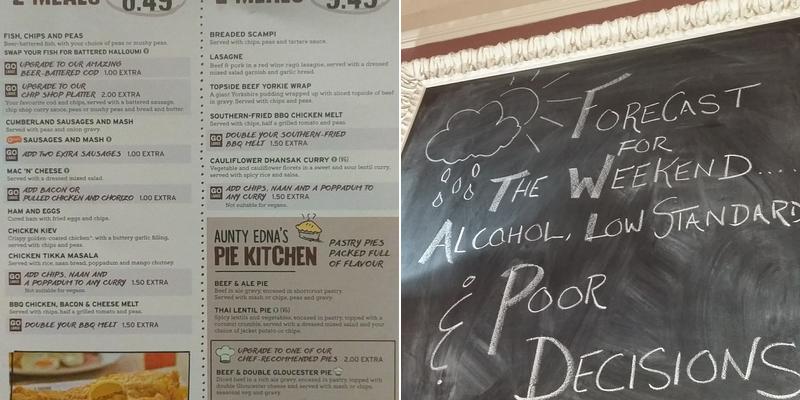 2 MEALS 6.49
FISH, CHIPS AND PEAS
Beer-battered fish, with your choice of peas or mushy peas.
SWAP YOUR FISH FOR BATTERED HALLOUMI V
GO LARGE UPGRADE TO OUR AMAZING
BEER-BATTERED COD 1.00 EXTRA
GO LARGE UPGRADE TO OUR
CHIP SHOP PLATTER 2.00 EXTRA
Your favourite cod and chips, served with a battered sausage,
chip shop curry sauce, peas or mushy peas and bread and butter.
CUMBERLAND SAUSAGES AND MASH
Served with peas and onion gravy.
SAUSAGES AND MASH V
GO LARGE ADD TWO EXTRA SAUSAGES 1.00 EXTRA
MAC 'N' CHEESE V
Served with a dressed mixed salad.
GO LARGE ADD BACON OR
PULLED CHICKEN AND CHORIZO 1.00 EXTRA
HAM AND EGGS
Cured ham with fried eggs and chips.
CHICKEN KIEV
Crispy golden-coated chicken*, with a buttery garlic filling,
served with chips and peas.
CHICKEN TIKKA MASALA
Served with rice, naan bread, poppadum and mango chutney.
GO LARGE ADD CHIPS, NAAN AND
A POPPADUM TO ANY CURRY 1.50 EXTRA
Not suitable for vegans.
BBQ CHICKEN, BACON & CHEESE MELT
Served with chips, half a grilled tomato and peas.
GO LARGE DOUBLE YOUR BBQ MELT 1.50 EXTRA
2 MEALS
BREADED SCAMPI
Served with chips, peas and tartare sauce.
LASAGNE
Beef & pork in a red wine ragù lasagne, served with a dressed
mixed salad garnish and garlic bread.
TOPSIDE BEEF YORKIE WRAP
A giant Yorkshire pudding wrapped up with sliced topside of beef
in gravy. Served with chips and peas.
SOUTHERN-FRIED BBQ CHICKEN MELT
Served with chips, half a grilled tomato and peas.
GO LARGE DOUBLE YOUR SOUTHERN-FRIED
BBQ MELT 1.50 EXTRA
CAULIFLOWER DHANSAK CURRY V (VE)
Vegetable and cauliflower florets in a sweet and sour lentil curry,
served with spicy rice and salsa.
GO LARGE ADD CHIPS, NAAN AND A POPPADUM TO
ANY CURRY 1.50 EXTRA
Not suitable for vegans.
AUNTY EDNA'S
PIE KITCHEN
PASTRY PIES
PACKED FULL
OF FLAVOUR
BEEF & ALE PIE
Beef in ale gravy, encased in shortcrust pastry.
Served with mash or chips, peas and gravy.
THAI LENTIL PIE V (VE)
Spicy lentils and vegetables, encased in pastry, topped with a
coconut crumble, served with a dressed mixed salad and your
choice of jacket potato or chips.
UPGRADE TO ONE OF OUR
CHEF-RECOMMENDED PIES 2.00 EXTRA
BEEF & DOUBLE GLOUCESTER PIE
Diced beef in a rich ale gravy, encased in pastry, topped with
double Gloucester cheese and served with mash or chips,
seasonal veg and gravy.
FORECAST
FOR
THE WEEKEND....
ALCOHOL, LOW STANDARD
& POOR
DECISIONS